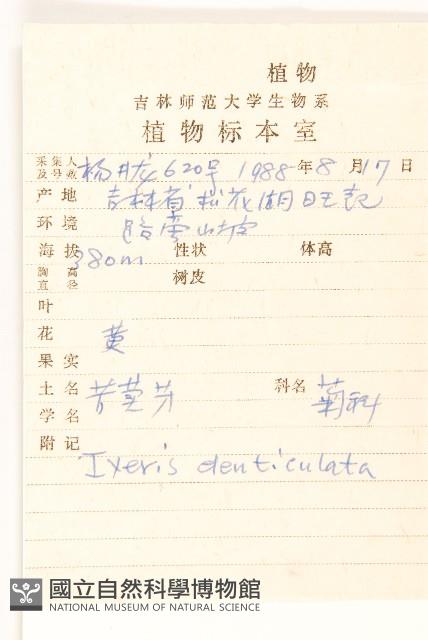 植物
吉林师范大学生物系
植物标本室
采集人及号数 杨 620号 1988年8月17日
产地 吉林省松花湖旺起
环境 路旁山坡
海拔 380m 性状 体高
胸高直径 树皮
叶
花 黄
果实
土名 苦荬芽 科名 菊科
学名
附记 Ixeris denticulata
國立自然科學博物館
NATIONAL MUSEUM OF NATURAL SCIENCE